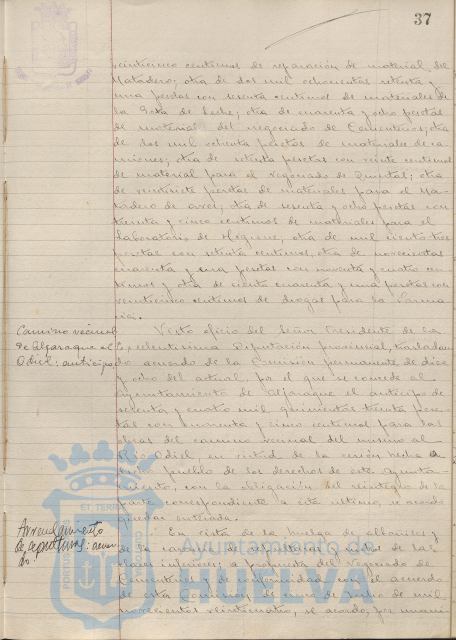 37
veinticinco centimos de reparación de material del
Matadero; otra de dos mil ochocientas setenta y
una pesetas con sesenta centimos de materiales de
la Gota de Leche; otra de cuarenta y ocho pesetas
de material del negociado de Cementerios; otra
de dos mil ochenta pesetas de materiales de ca
miones; otra de setenta pesetas con veinte centimos
de material para el negociado de Quintas; otra
de veintisiete pesetas de materiales para el Ma
tadero de aves; otra de sesenta y ocho pesetas con
treinta y cinco centimos de materiales para el
Laboratorio de Higiene; otra de mil ciento tres
pesetas con setenta centimos, otra de novecientas
cuarenta y una pesetas con noventa y cuatro cen
timos y otra de ciento cuarenta y una pesetas con
veinticinco centimos de drogas para la Farma
cia.
Camino vecinal
de Aljaraque al
Odiel: anticipo
Visto oficio del Señor Presidente de la
Excelentisima Diputación provincial, trasladan
do acuerdo de la Comisión permanente de diez
y ocho del actual, por el que se concede al
Ayuntamiento de Aljaraque el anticipo de
sesenta y cuatro mil quinientas treinta pese
tas con cuarenta y cinco centimos para las
obras del camino vecinal del mismo al
Rio Odiel, en virtud de la cesión hecha a
dicho pueblo de los derechos de este Ayunta
miento, con la obligación del reintegro de la
parte correspondiente a este ultimo, se acordó
quedar enterada.
Arrendamiento
de sepulturas: acuer
do.
En vista de la huelga de albañiles y
de la carencia de sepulturas y nichos de las
clases inferiores; a propuesta del Negociado de
Cementerios y de conformidad con el acuerdo
de esta Comisión de cinco de Junio de mil
novecientos veinticuatro, se acordó, por unani
Ayuntamiento de
HUELVA